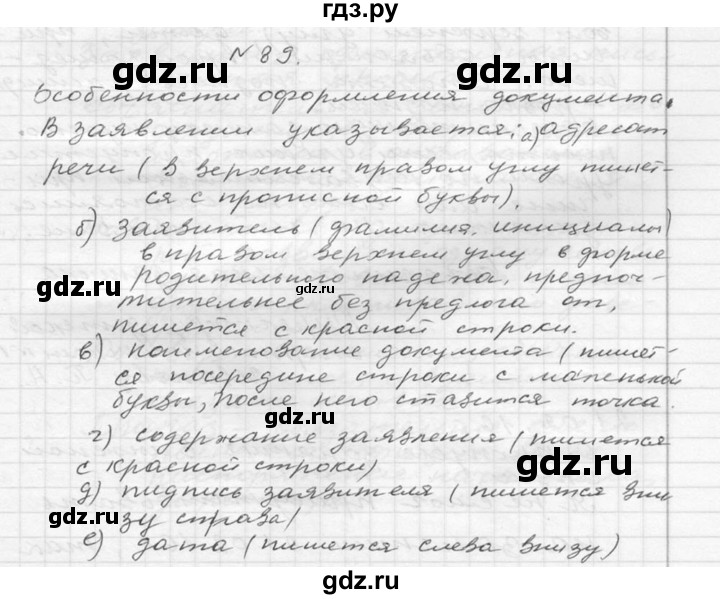 гдз.ру
№ 89.
Особенности оформления документа.
В заявлении указывается: а) адресат
речи (в верхнем правом углу пишет-
ся с прописной буквы).
б) заявитель (фамилия, инициалы)
в правом верхнем углу в форме
Родительного падежа, предпоч-
тительнее без предлога от,
пишется с красной строки.
в) наименование документа (пишет-
ся посередине строки с маленькой
буквы, после него ставится точка.
г) содержание заявления (пишется
с красной строки)
д) пидпись заявителя (пишется вни
зу справа)
е) дата (пишется слева внизу)
gdz.ru
gdz.ru
gdz.ru
gdz.ru
gdz.ru
gdz.ru
gdz.ru
gdz.ru
gdz.ru